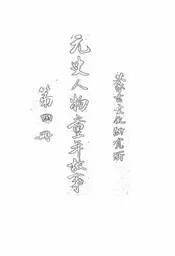 蒙古文化研究所
元史人物童年故事
第四册